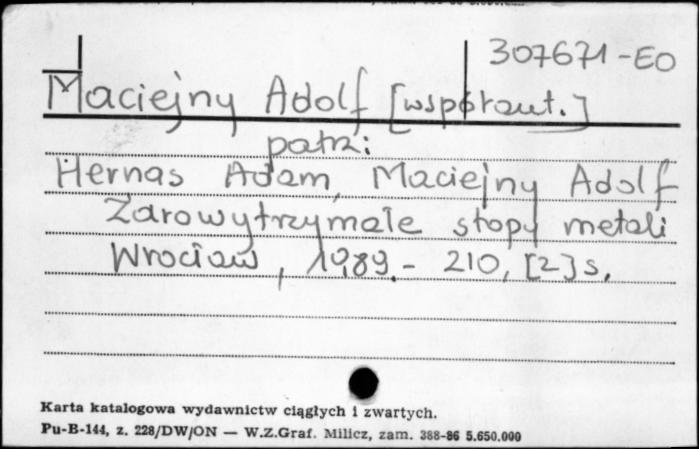 307671-EO
Maciejny Adolf [współaut.]
patrz:
Hernas Adam, Maciejny Adolf
Żarowytrzymałe stopy metali
Wrocław, 1989. - 210, [2] s.
Karta katalogowa wydawnictw ciągłych i zwartych.
Pu-B-144, z. 228/DW/ON — W.Z.Graf. Milicz, zam. 388-86 5.650.000